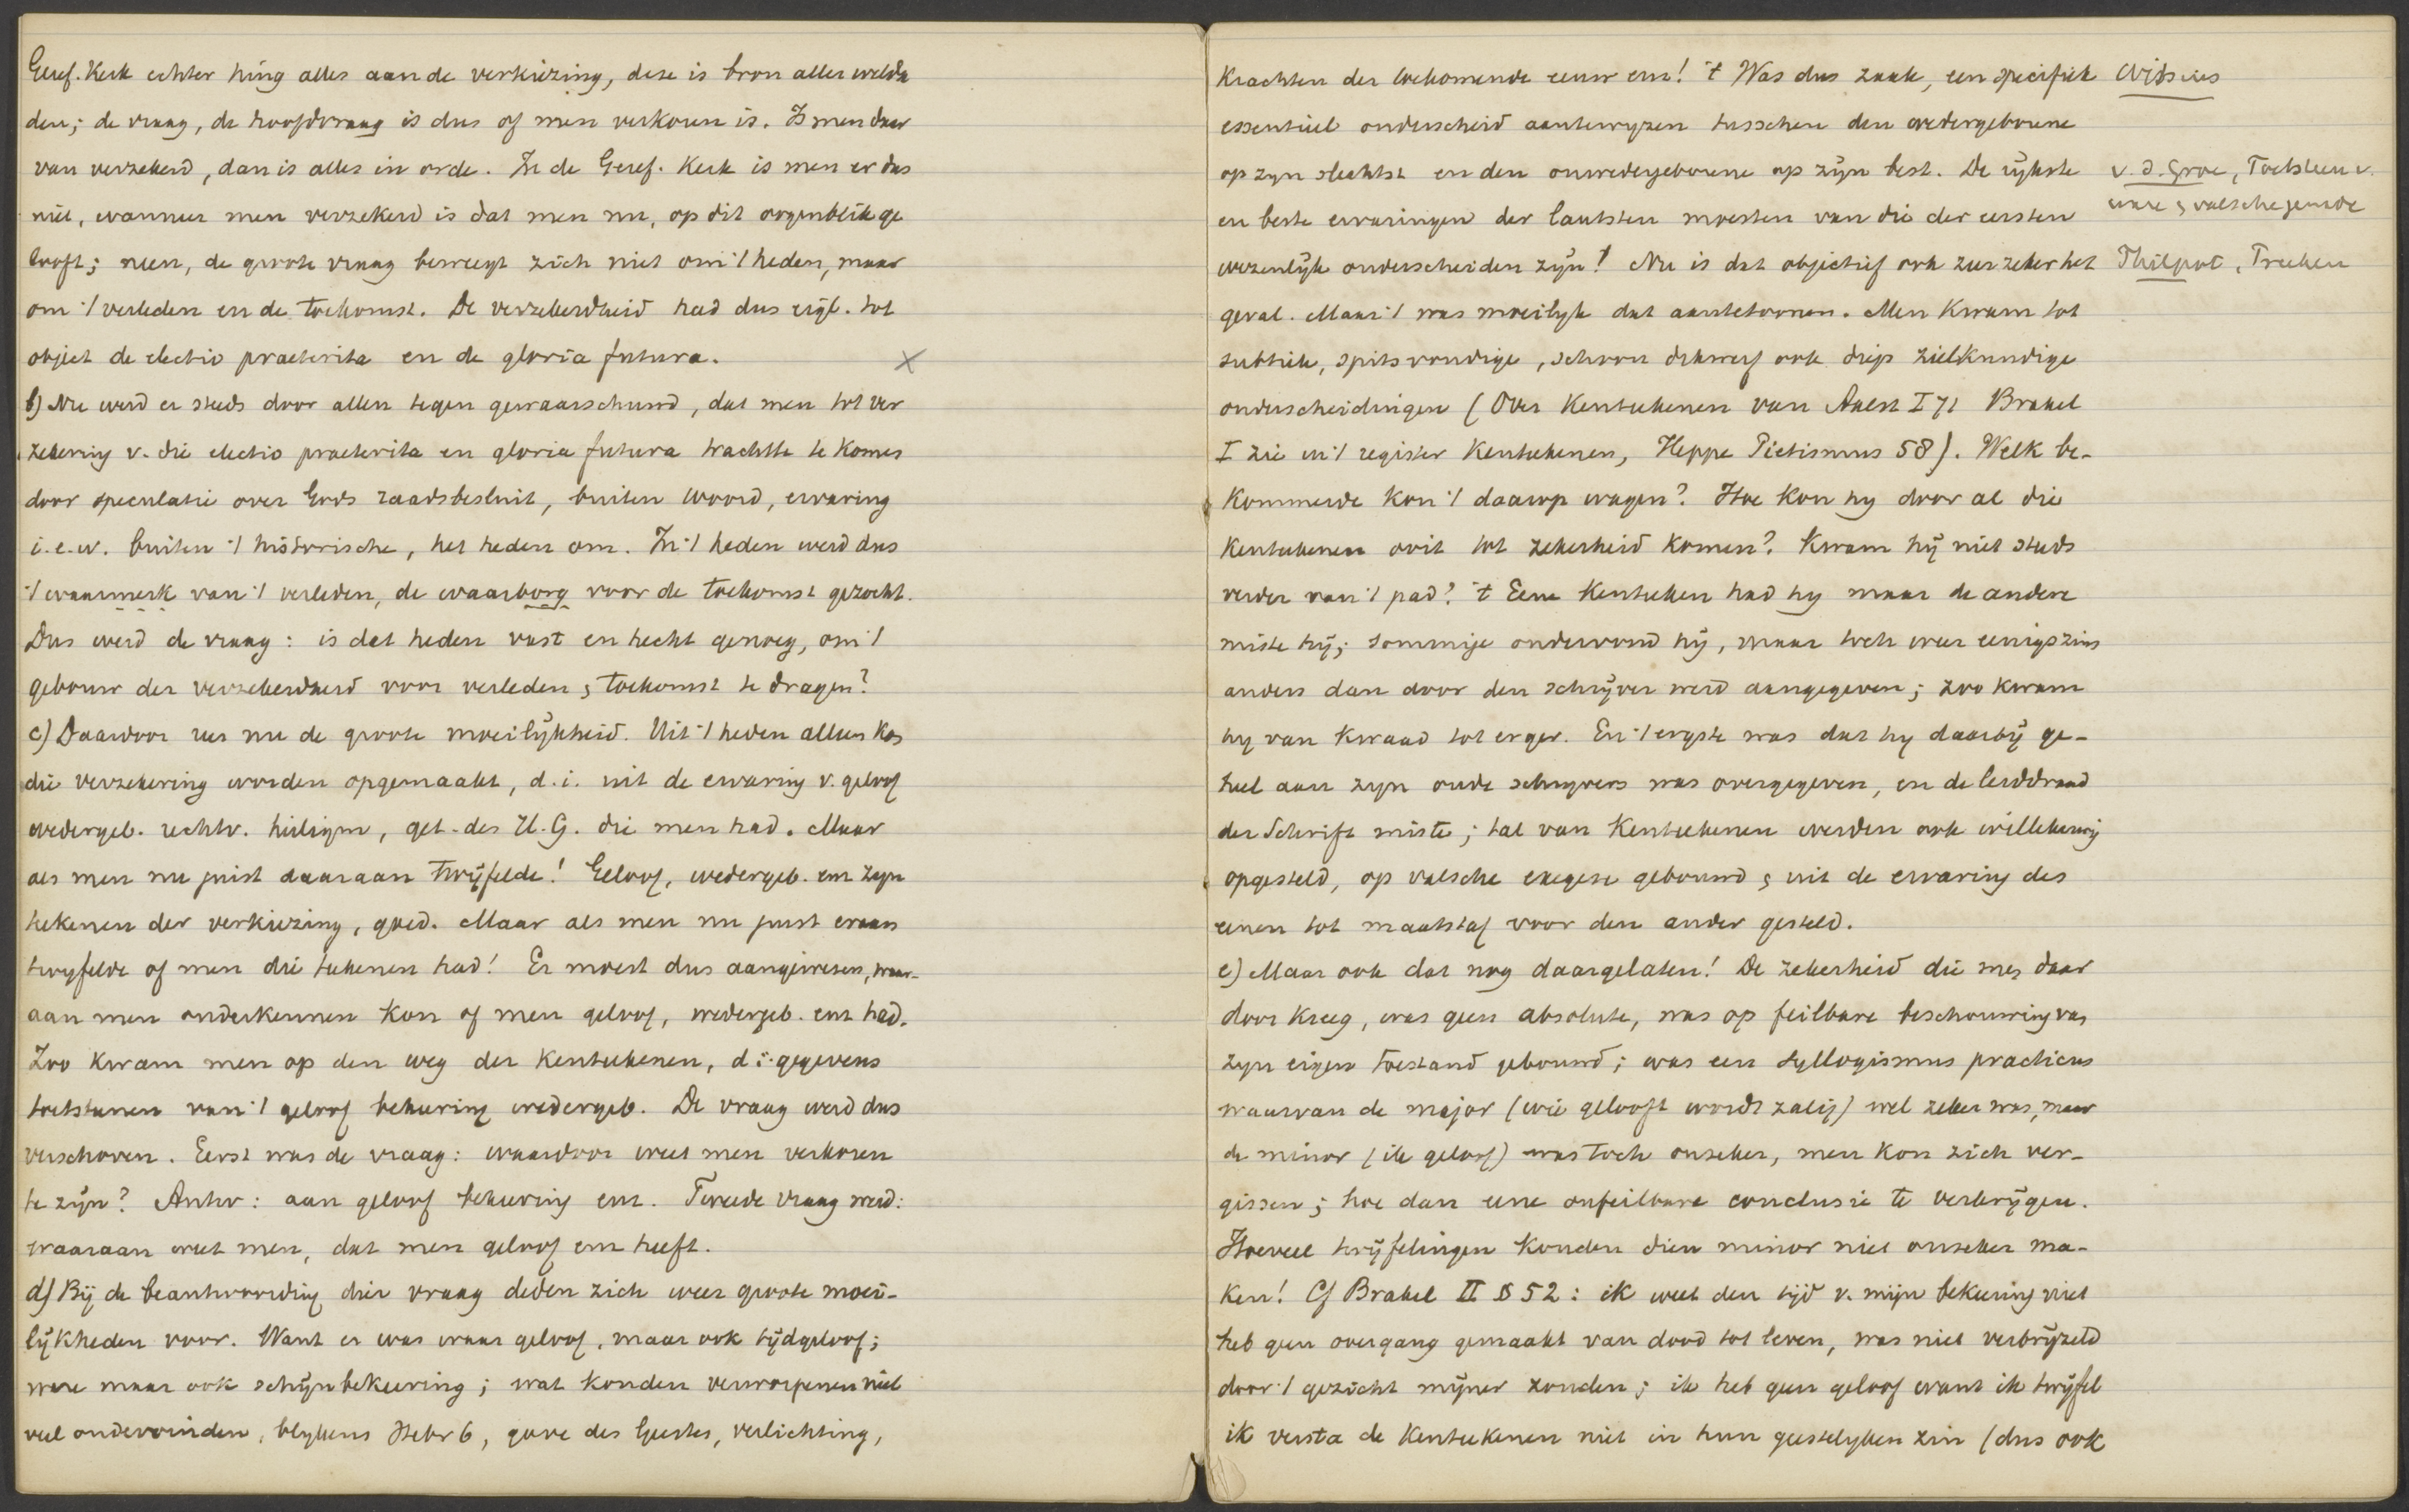 Geref. Kerk echter hing alles aan de verkiezing, deze is bron aller welda
den; de vraag, de hoofdvraag is dus of men verkoren is. Is men daar
van verzekerd, dan is alles in orde. In de Geref. Kerk is men er dus
niet, wanneer men verzekerd is dat men nu, op dit oogenblik ge
looft; neen, de groote vraag beweegt zich niet om 't heden, maar
om 't verleden en de toekomst. De verzekerdheid had dus eigl. tot
object de electio praeterita en de gloria futura. ×
b) Nu werd er steeds door allen tegen gewaarschuwd, dat men tot ver
zekering v. die electio praeterita en gloria futura trachtte te komen
door speculatie over Gods raadsbesluit, buiten woord, ervaring
i.e.w. buiten 't historische, het heden om. In 't heden werd dus
't waarmerk van 't verleden, de waarborg voor de toekomst gezocht.
Dus werd de vraag: is dat heden vast en hecht genoeg, om 't
gebouw der verzekerdheid voor verleden & toekomst te dragen?
c) Daardoor rees nu de groote moeilijkheid. Uit 't heden alleen kon
die verzekering worden opgemaakt, d.i. uit de ervaring v. geloof
wedergeb. rechtv. heiligm, get. des H.G. die men had. Maar
als men nu juist daaraan twijfelde! Geloof, wedergeb. enz zijn
tekenen der verkiezing, goed. Maar als men nu juist eraan
twyfelde of men die tekenen had! Er moest dus aangewezen, waar-
aan men onderkennen kon of men geloof, wedergeb. enz had.
Zoo kwam men op den weg der Kenteekenen, d.i. gegevens
toetsteenen van 't geloof bekeering wedergeb. De vraag werd dus
verschoven. Eerst was de vraag: waardoor weet men verkoren
te zijn? Antw: aan geloof bekeering enz. Tweede vraag werd:
waaraan weet men, dat men geloof enz heeft.
d) Bij de beantwoording dier vraag deden zich weer groote moei-
lijkheden voor. Want er was waar geloof, maar ook tijdgeloof;
ware maar ook schijnbekeering; wat konden verworpenen niet
veel ondervinden, blykens Hebr 6, gave des Geestes, verlichting,
Krachten der toekomende eeuw enz! 't Was dus zaak, een specifiek Witsius
essentieel onderscheid aantewyzen tusschen den wedergeborene
op zyn slechtst en den onwedergeborene op zijn best. De rijkste v. d. Groe, Toetsteen v.
en beste ervaringen der laatsten moesten van die der eersten ware & valsche genade
wezenlijk onderscheiden zijn! Nu is dat objectief ook zeer zeker het Philpot, Treeken
geval. Maar 't was moeilyk dat aantetoonen. Men kwam tot
subtiele, spitsvondige, schoon dikwerf ook diep zielkundige
onderscheidingen (Over Kenteekenen van Aalst I 71 Brakel
I zie in 't register Kenteekenen, Heppe Pietismus 58). Welk be-
kommerde kon 't daarop wagen? Hoe kon hy door al die
Kenteekenen ooit tot zekerheid komen? Kwam hij niet steeds
verder van 't pad? 't Eene Kenteeken had hy maar de andere
miste hij; sommige ondervond hij, maar toch weer eenigszins
anders dan door den schrijver werd aangegeven; zoo kwam
hy van kwaad tot erger. En 't ergste was dat hy daarbij ge-
heel aan zyn oude schryvers was overgegeven, en de leiddraad
der Schrift miste; tal van Kenteekenen werden ook willekeurig
opgesteld, op valsche exegese gebouwd & uit de ervaring des
eenen tot maatstaf voor den ander gesteld.
e) Maar ook dat nog daargelaten! De zekerheid die men daar
door kreeg, was geen absolute, was op feilbare beschouwing van
zyn eigen toestand gebouwd; was een syllogismus practicus
waarvan de major (wie gelooft wordt zalig) wel zeker was, maar
de minor (ik geloof) was toch onzeker, men kon zich ver-
gissen; hoe dan eene onfeilbare conclusie te verkrijgen.
Hoeveel twijfelingen konden dien minor niet onzeker ma-
ken! Cf Brakel II § 52: ik weet den tijd v. mijn bekeering niet
heb geen overgang gemaakt van dood tot leven, was niet verbrijzeld
door 't gezicht mijner zonden; ik heb geen geloof want ik twijfel
ik versta de Kenteekenen niet in hun geestelyken zin (dus ook